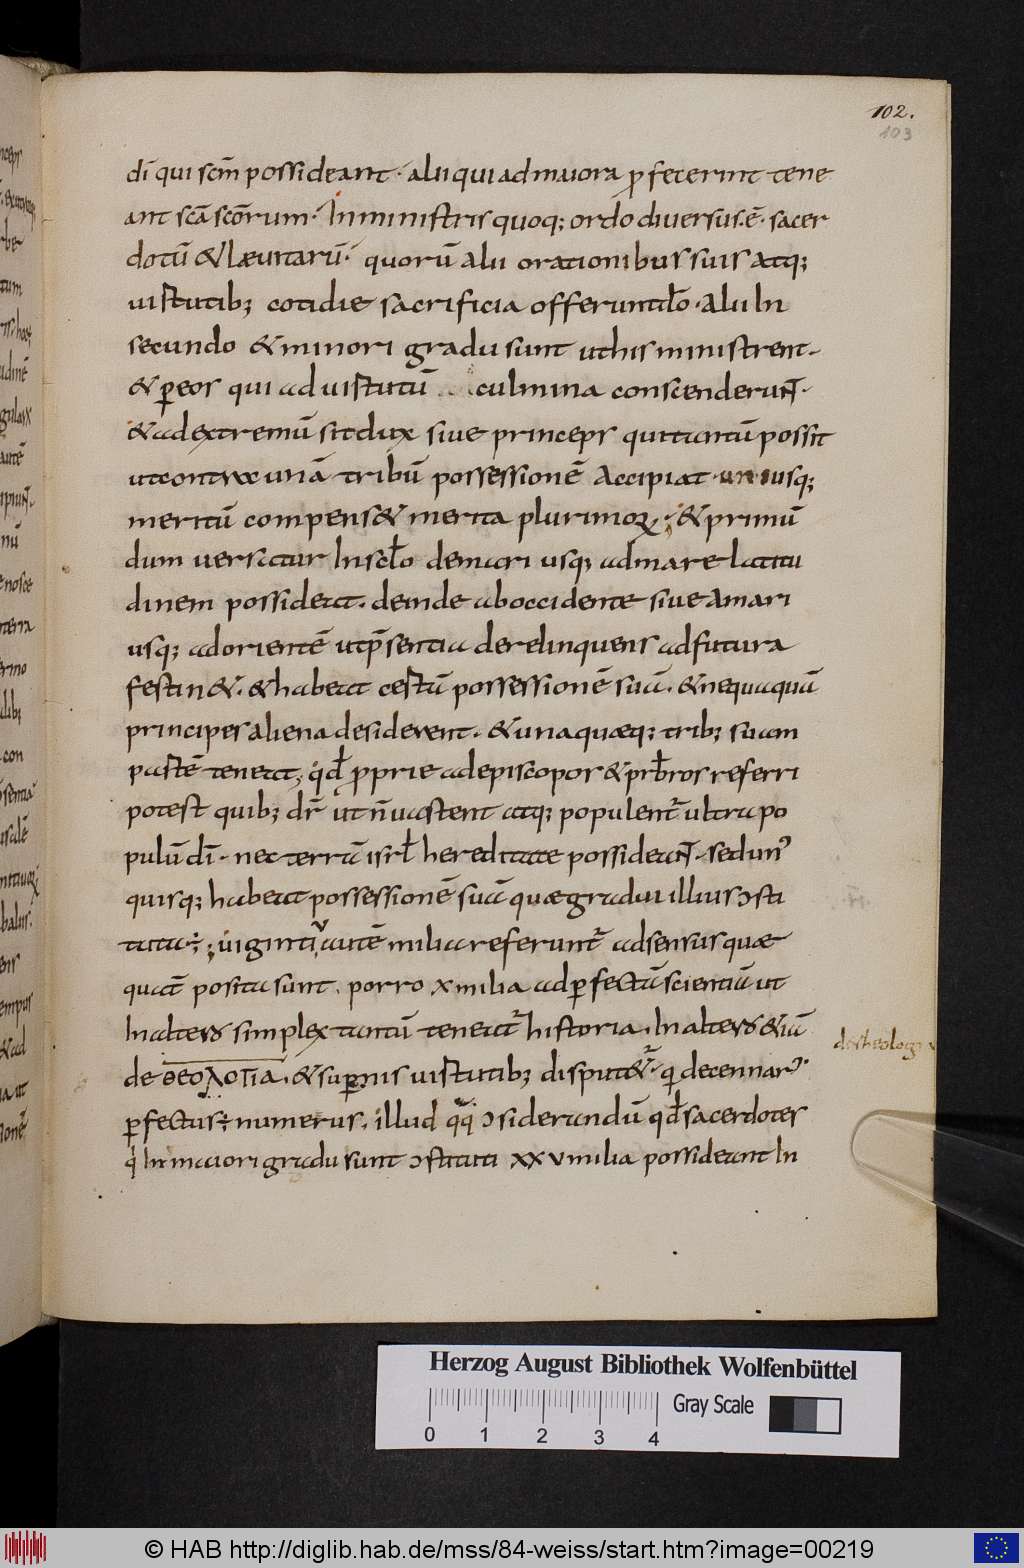 102.
103
dī qui scm̄ possideant · alii qui ad maiora ꝓfecerint tene
ant scā scōrum · In ministris quoq; ordo diuersus ē · sacer
dotū & Læuitarū · quorū alii orationibus suis atq;
uirtutib; cotidie sacrificia offerunt dō · alii In
secundo & minori gradu sunt ut his ministrent ·
& ꝑ eos qui ad uirtutū culmina conscenderunt ·
& ad extremū sit dux siue princeps qui tantū possit
ut contra unā tribū possessionē Accipiat · unius q;
meritū compens& merita plurimoꝝ · & primū
dum uersatur In sclo de mari usq; ad mare Latitu
dinem possideat · deinde ab occidente siue A mari
usq; ad orientē ut p̄sentia derelinquens ad futura
festin& · & habeat certū possessionē suā · & nequaquā
principes aliena desiderent · & una quæq; trib; suam
partē teneat · qd̄ ꝓprie ad episcopos & prb̄ros referri
potest quib; dr̄ ut n̄ uastent atq; populent᷑ ultra po
pulū dī · nec terrā isrl̄ hereditate possideant · sed un᷒
quisq; habeat possessionē suā quæ gradui illius ↄsti
tuta ÷ ; uiginti v autē milia referunt᷑ ad sensus quæ
quāt posita sunt · porro x milia ad ꝑfectā scientiā ut
In altero simplex tantū teneat᷑ historia · In altero & iā
de θεολοΓια · & supnis uirtutib; disputet᷑ · qi decennari᷒
ꝑfectus ÷ numerus · illud qq; ↄsiderandū qd̄ sacerdotes
qi In maiori gradu sunt ↄstituti xxv milia possideant In
de theologia
Herzog August Bibliothek Wolfenbüttel
0 1 2 3 4
Gray Scale
© HAB http://diglib.hab.de/mss/84-weiss/start.htm?image=00219